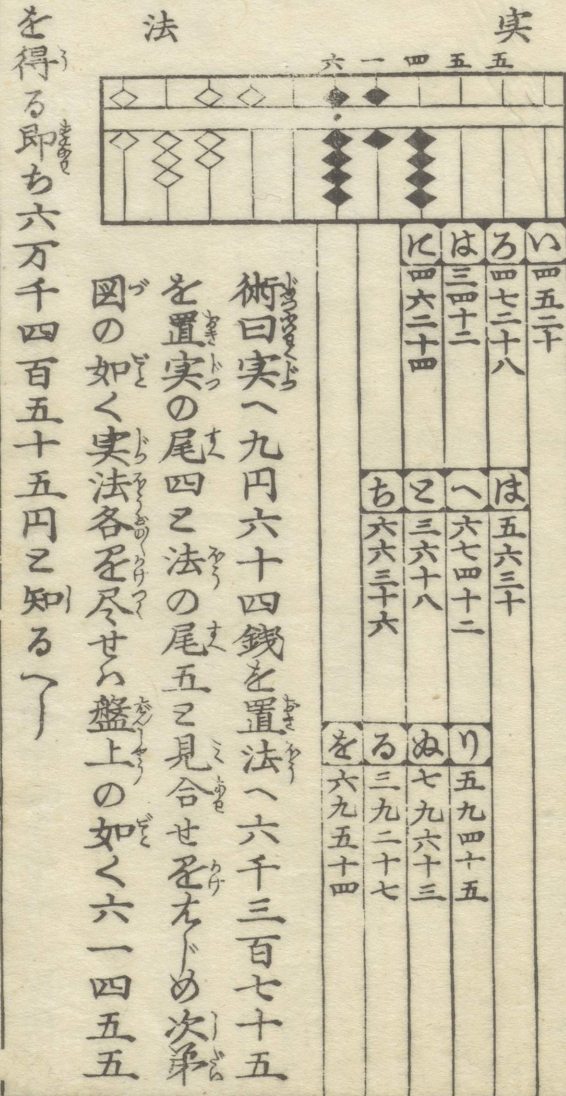 実
法
六一四五五
い 四五二十
ろ 四七二十八
は 三四十二
に 四六二十四
は 五六三十
へ 六七四十二
と 三六十八
ち 六六三十六
り 五九四十五
ぬ 七九六十三
る 三九二十七
を 六九五十四
術曰実へ九円六十四銭を置法へ六千三百七十五
を置実の尾四と法の尾五と見合せをはじめ次第
図の如く実法各を尽せハ盤上の如く六一四五五
を得る即ち六万千四百五十五円と知るへし